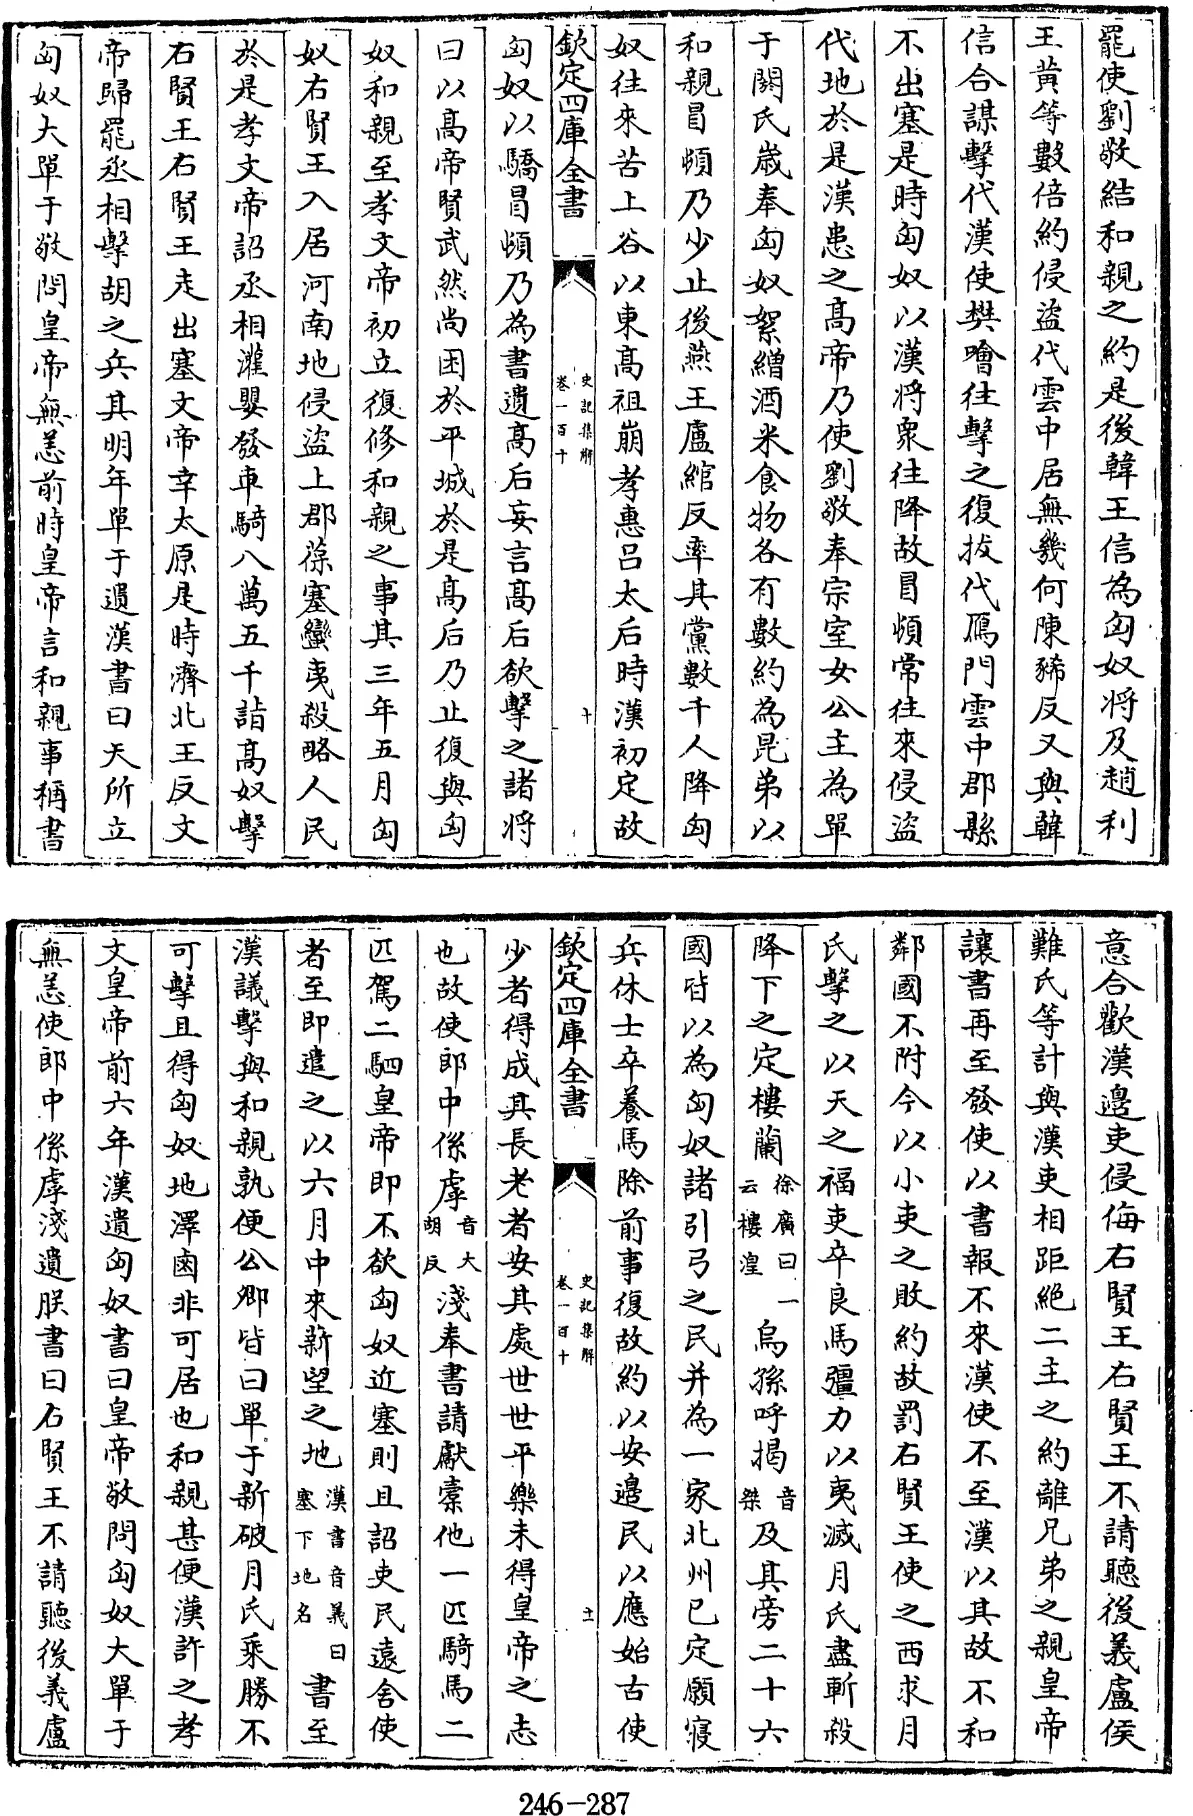 罷使劉敬結和親之約是後韓王信為匈奴將及趙利
王黃等數倍約侵盜代雲中居無幾何陳豨反又與韓
信合謀擊代漢使樊噲往擊之復拔代鴈門雲中郡縣
不出塞是時匈奴以漢將衆往降故冒頓常往來侵盜
代地於是漢患之高帝乃使劉敬奉宗室女公主為單
于閼氏歲奉匈奴絮繒酒米食物各有數約為昆弟以
和親冒頓乃少止後燕王盧綰反率其黨數千人降匈
奴往來苦上谷以東高祖崩孝惠呂太后時漢初定故
欽定四庫全書
史記集解
卷一百十
十
匈奴以驕冒頓乃為書遺高后妄言高后欲擊之諸將
曰以高帝賢武然尚困於平城於是高后乃止復與匈
奴和親至孝文帝初立復修和親之事其三年五月匈
奴右賢王入居河南地侵盜上郡葆塞蠻夷殺略人民
於是孝文帝詔丞相灌嬰發車騎八萬五千詣高奴擊
右賢王右賢王走出塞文帝幸太原是時濟北王反文
帝歸罷丞相擊胡之兵其明年單于遺漢書曰天所立
匈奴大單于敬問皇帝無恙前時皇帝言和親事稱書
意合歡漢邊吏侵侮右賢王右賢王不請聽後義盧侯
難氏等計與漢吏相距絕二主之約離兄弟之親皇帝
讓書再至發使以書報不來漢使不至漢以其故不和
鄰國不附今以小吏之敗約故罰右賢王使之西求月
氏擊之以天之福吏卒良馬彊力以夷滅月氏盡斬殺
降下之定樓蘭徐廣曰一云樓湟烏孫呼揭音桀及其旁二十六
國皆以為匈奴諸引弓之民并為一家北州已定願寑
兵休士卒養馬除前事復故約以安邊民以應始古使
欽定四庫全書
史記集解
卷一百十
十一
少者得成其長老者安其處世世平樂未得皇帝之志
也故使郎中係虖音大胡反淺奉書請獻橐他一匹騎馬二
匹駕二駟皇帝即不欲匈奴近塞則且詔吏民遠舍使
者至即遣之以六月中來薪望之地漢書音義曰塞下地名書至
漢議擊與和親孰便公卿皆曰單于新破月氏乘勝不
可擊且得匈奴地澤鹵非可居也和親甚便漢許之孝
文皇帝前六年漢遺匈奴書曰皇帝敬問匈奴大單于
無恙使郎中係虖淺遺朕書曰右賢王不請聽後義盧
246-287